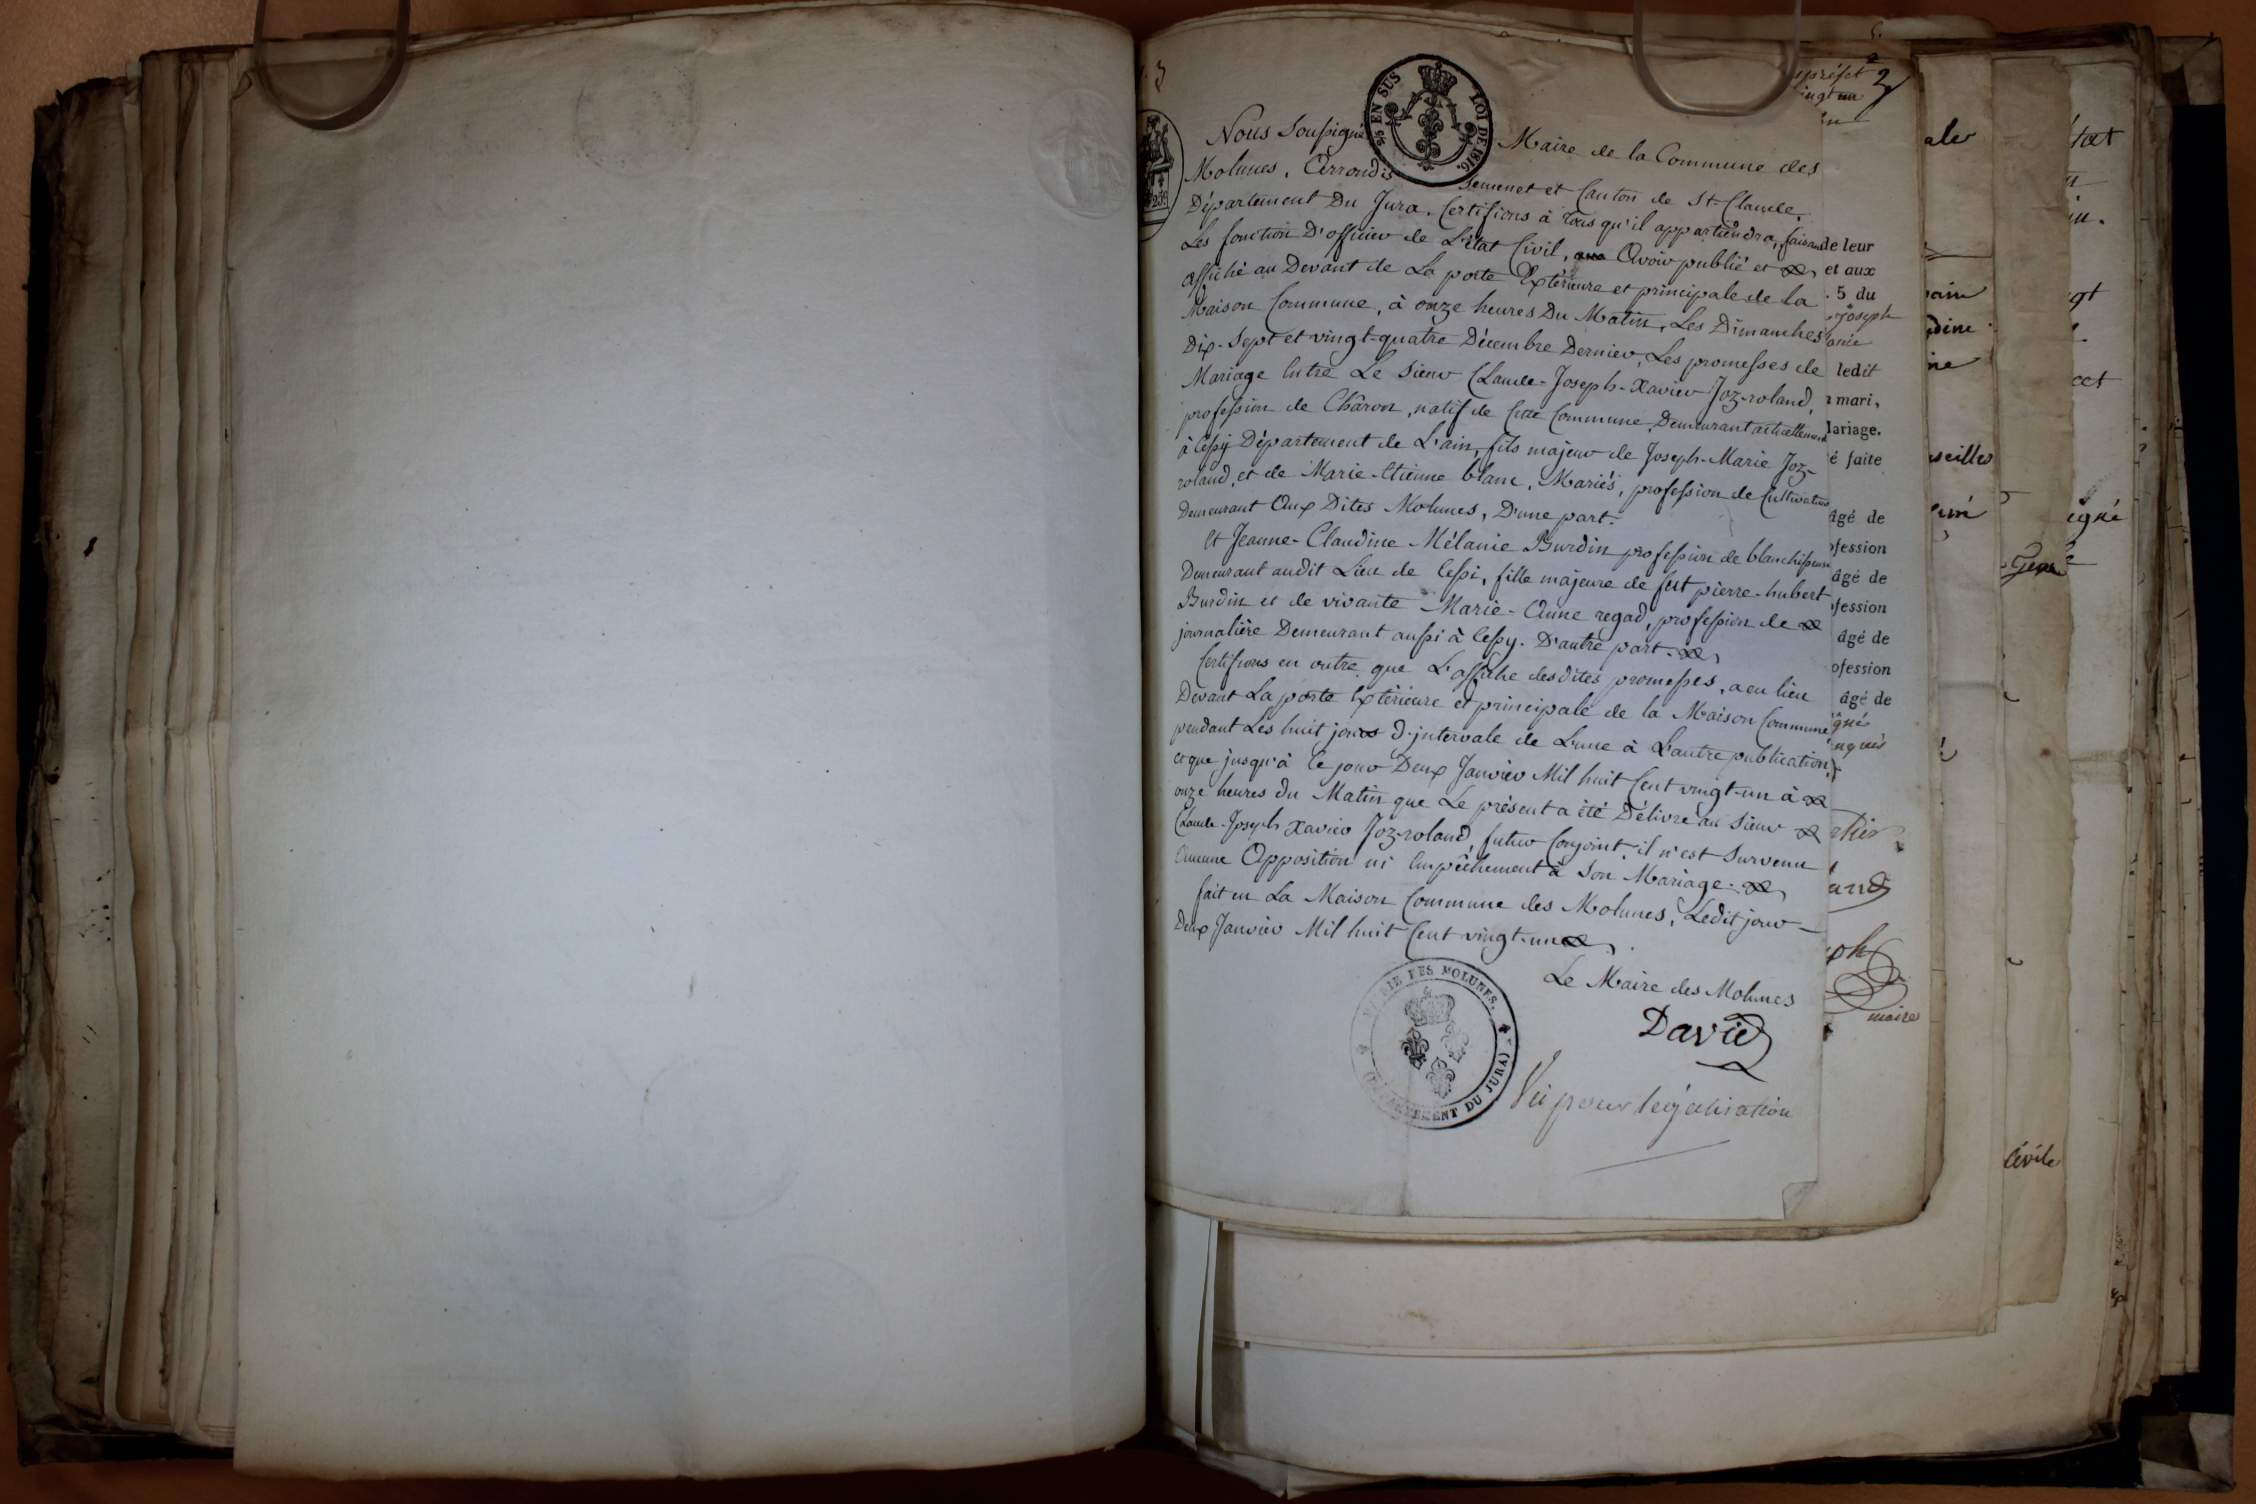 Nous Soussigné Maire de la Commune des
Molunes, Arrondissemenet et Canton de St-Claude,
Département Du Jura, Certifions à tous qu'il appartiendra, faisant
Les fonction D'officier de L'état Civil, Avoir publié et
affiché au Devant de La porte Extérieure et principale de la
Maison Commune, à onze heures Du Matin, Les Dimanches
Dix-Sept et vingt-quatre Décembre Dernier, Les promesses de
Mariage Entre Le Sieur Claude-Joseph-Xavier Joz-roland,
profession de Châron, natif de Cette Commune, Demeurant actuellement
à Cessy Département de L'ain, fils majeur de Joseph-Marie Joz-
roland, et de Marie-Etienne blanc, Mariés, profession de Cultivateurs
Demeurant Aux Dites Molunes, D'une part.
Et Jeanne-Claudine Mélanie Burdin profession de blanchisseuse
Demeurant audit Lieu de Cessi, fille majeure de fut pierre-hubert
Burdin et de vivante Marie-Anne regad, profession de
journalière Demeurant aussi à Cessy. D'autre part.
Certifions en outre que L'affiche desdites promesses, a eu lieu
Devant La porte Extérieure et principale de la Maison Commune
pendant Les huit jours d'intervale de L'une à L'autre publication,
et que jusqu'à ce jour Deux Janvier Mil huit Cent vingt-un à
onze heures du Matin que Le présent a été Délivré au Sieur
Claude-Joseph Xavier Joz-roland, futur Conjoint, il n'est Survenu
Aucune Opposition ni Empêchement à Son Mariage.
fait en La Maison Commune des Molunes, Ledit jour
Deux Janvier Mil huit Cent vingt-un
Le Maire des Molunes
David
Vu pour légalisation
EN SUS
LOI DE 1816.
MAIRIE DES MOLUNES.
(DÉPARTEMENT DU JURA)
2
de leur
et aux
. 5 du
Joseph
ledit
mari,
Mariage.
é faite
âgé de
ofession
âgé de
ofession
âgé de
ofession
âgé de
maire
Civile